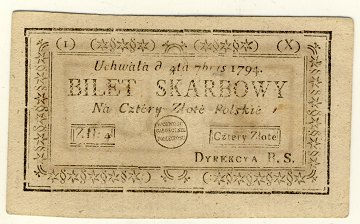 (I) (X)
Uchwała d 4ta 7bris 1794.
BILET SKARBOWY
Na Cztéry Złoté Polskié
Złł: 4 Cztéry Złoté
DYREKCYA B. S.